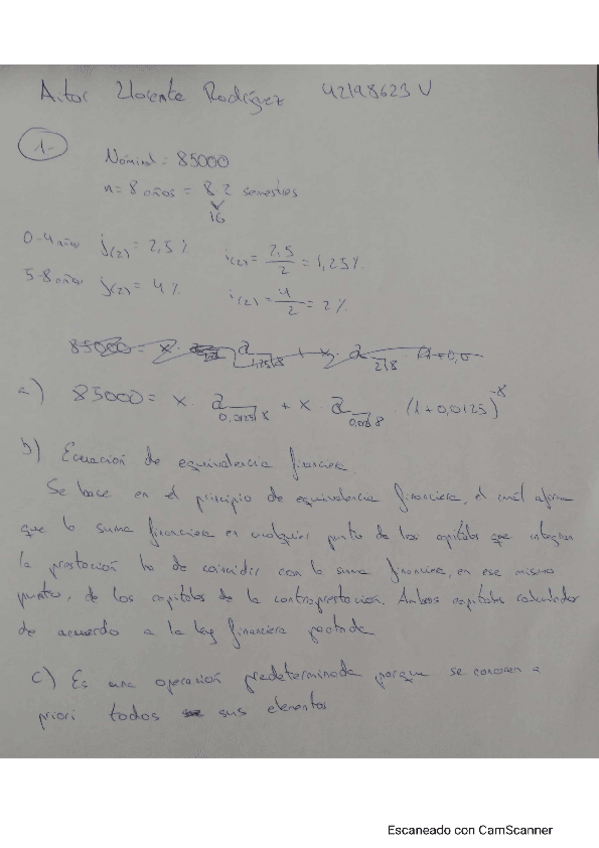 Aitor Llorente Rodríguez 42198623V
1.-
Nóminal = 85000
n = 8 años = 8·2 semestres
16
0-4 años j(2) = 2,5% i(2) = 2,5/2 = 1,25%
5-8 años j(2) = 4% i(2) = 4/2 = 2%
a) 85000 = x · a 0,0125 8 + x · a 8 · (1 + 0,0125)^-8
b) Ecuación de equivalencia financiera.
Se base en el principio de equivalencia financiera, el cuál afirma
que la suma financiera en cualquier punto de los capitales que integran
la prestación ha de coincidir con la suma financiera, en ese mismo
punto, de los capitales de la contraprestación. Ambos capitales calculados
de acuerdo a la ley financiera pactada
c) Es una operación predeterminada porque se conocen a
priori todos sus elementos
Escaneado con CamScanner